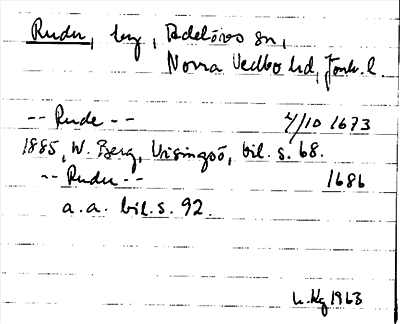 Rudu, by, Adelövs sn,
Norra Vedbo hd, Jönk. l.
-- Rude -- 4/10 1673
1885, W. Berg, Visingsö, bil. s. 68.
-- Rudu -- 1686
a. a. bil. s. 92.
1963